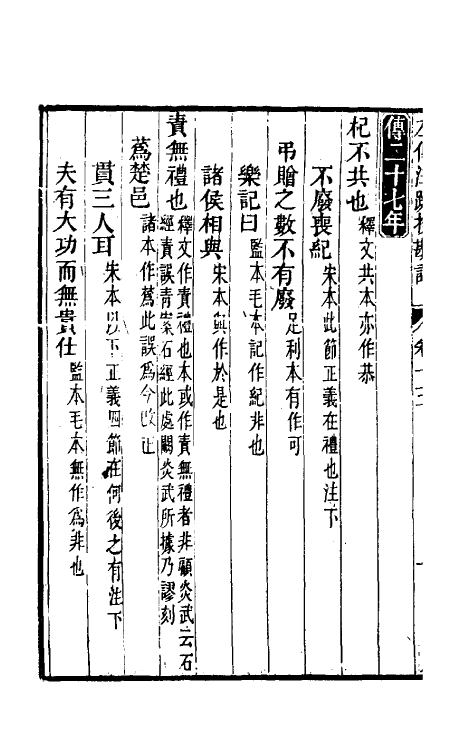 傳二十七年
杞不共也 釋文共本亦作恭
不廢喪紀 宋本此節正義在禮也注下
弔贈之數不有廢 足利本有作可
樂記曰 監本毛本記作紀非也
諸侯相與 宋本與作於是也
責無禮也 釋文作責禮也本或作責無禮者非顧炎武云石
經責誤青案石經此處闕炎武所據乃謬刻
蔿楚邑 諸本作蔿此誤爲今改正
貫三人耳 宋本以下正義四節在何後之有注下
夫有大功而無貴仕 監本毛本無作爲非也